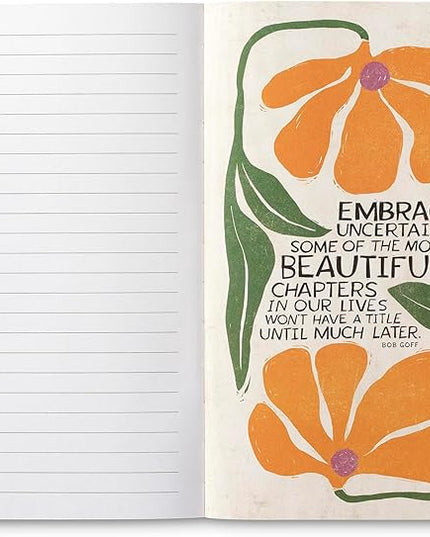 EMBRAC
UNCERTAI
SOME OF THE MO
BEAUTIFU
CHAPTERS
IN OUR LIVES
WON'T HAVE A TITLE
UNTIL MUCH LATER.
BOB GOFF